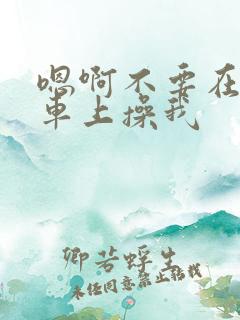 嗯啊不要在
车上操我
卿若蜉生
未经同意禁止转载